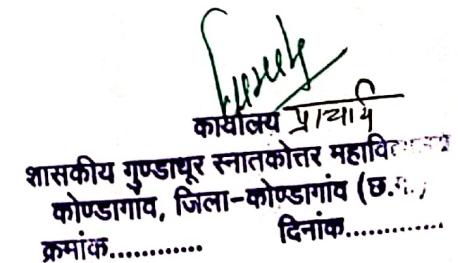 कार्यालय प्राचार्य
शासकीय गुण्डाधूर स्नातकोत्तर
कोण्डागांव, जिला-कोण्डागांव (छ.
क्रमांक............ दिनांक.............